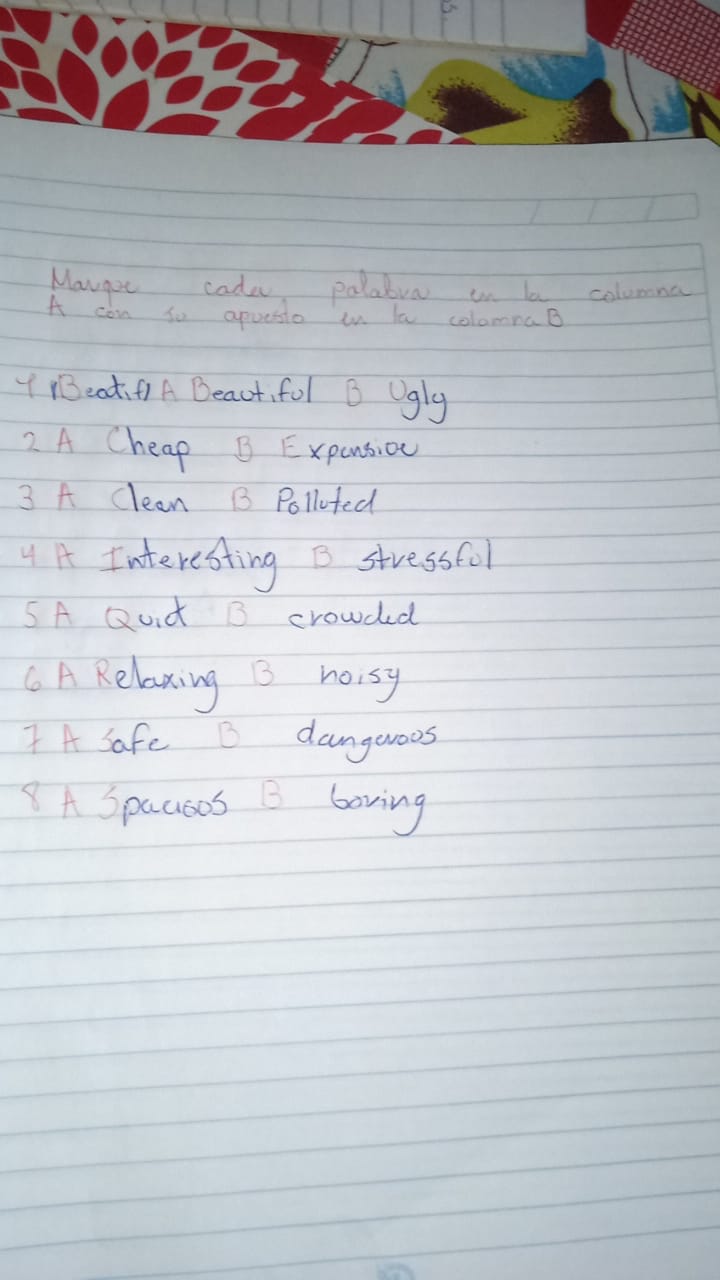 Marque cada palabra en la columna
A con su apuesto en la colomna B
1 (Beatifl A Beautiful B Ugly
2 A Cheap B Expensive
3 A Clean B Polluted
4 A Interesting B stressful
5 A Quiet B crowded
6 A Relaxing B noisy
7 A Safe B dangeroos
8 A Spacioos B boring